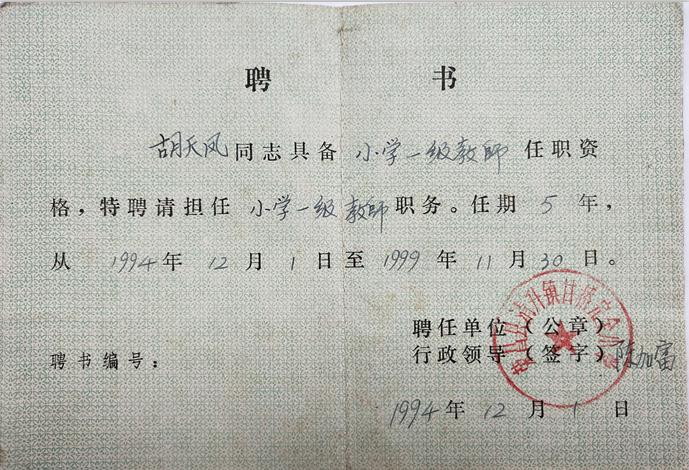 聘 书
胡天凤同志具备 小学一级教师 任职资
格，特聘请担任 小学一级教师 职务。任期 5 年，
从 1994 年 12 月 1 日至 1999 年 11 月 30 日。
聘任单位（公章）
聘书编号：
行政领导（签字）陈加富
1994 年 12 月 1 日